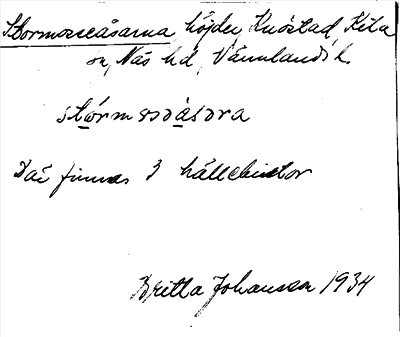 Stormosseåsarna höjder, Knöstad, Kila
sn, Näs hd, Värmlands l.
stórmosəåsɔra
Där finnas 3 hällekistor
Britta Johansson 1934